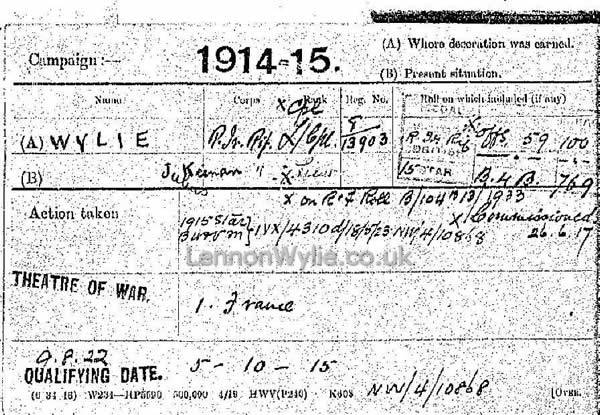 Campaign :—
1914-15.
(A) Where decoration was earned.
(B) Present situation.
Name Corps Rank Reg. No. Roll on which included (if any)
X Cpl
(A) WYLIE R. Ir. Rif. L/Cpl. 13903 R Ir Rif Offs 59 100
15 STAR B. & B. 769
(B) Jas " X
X on R.I. Roll B/104 B13/1933
Action taken
1915 Star X Commissioned
IVX/4310d/18/5/23 NW/4/10868 26.6.17
LennonWylie.co.uk
THEATRE OF WAR. 1. France
9.8.22
QUALIFYING DATE. 5 - 10 - 15
(6 34 16) W234—HP5590 500,000 4/19 HWV(P240) K608 [OVER.
NW/4/10868